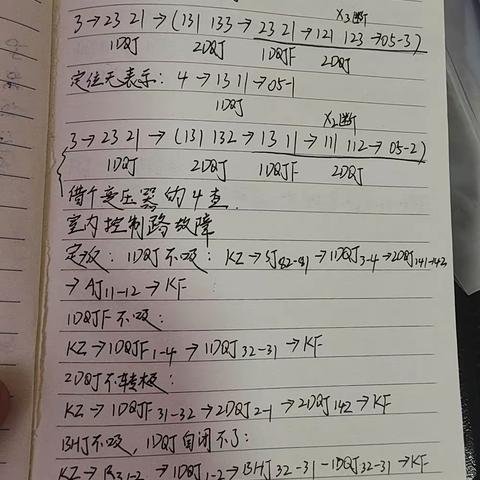 X3断
3→23 21→(131 133→23 21→121 123→05-3)
1DQJ 2DQJ 1DQJF 2DQJ
定位无表示：4→13 11→05-1
1DQJ
X2断
3→23 21→(131 132→13 11→111 112→05-2)
1DQJ 2DQJ 1DQJF 2DQJ
借个变压器的4查.
室内控制路故障
定反：1DQJ不吸：KZ→SJ82-81→1DQJ3-4→2DQJ141→142
→AJ11-12→KF
1DQJF不吸：
KZ→1DQJF1-4→1DQJ32-31→KF
2DQJ不转极：
KZ→1DQJF31-32→2DQJ2-1→2DQJ142→KF
BHJ不吸，1DQJ自闭不了：
KZ→R31-2→1DQJ1-2→BHJ32-31-1DQJ32-31→KF